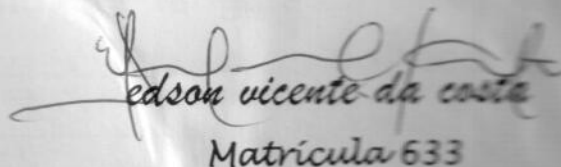 edson vicente da costa
Matrícula 633